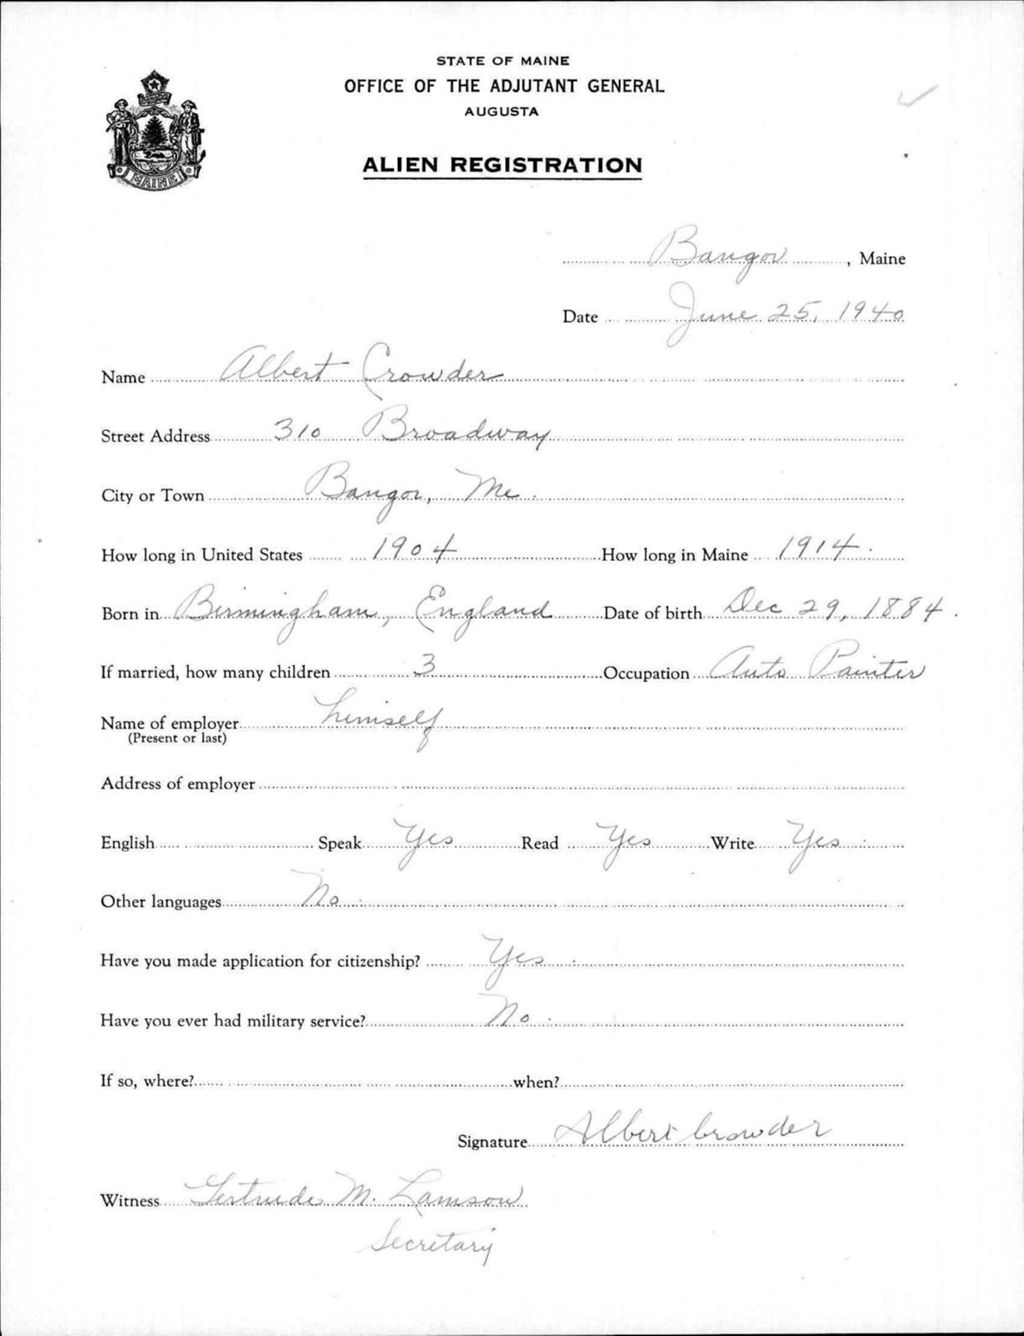 STATE OF MAINE
OFFICE OF THE ADJUTANT GENERAL
AUGUSTA
MAINE
ALIEN REGISTRATION
Bangor, Maine
Date June 25, 1940
Name Albert Crowder
Street Address 310 Broadway
City or Town Bangor, Me.
How long in United States 1904 How long in Maine 1914.
Born in Birmingham, England Date of birth Dec 29, 1884.
If married, how many children 3 Occupation Auto Painter
Name of employer himself
(Present or last)
Address of employer
English Speak Yes Read Yes Write Yes.
Other languages No.
Have you made application for citizenship? Yes.
Have you ever had military service? No.
If so, where? when?
Signature Albert Crowder
Witness Gertrude M. Lamson
Secretary